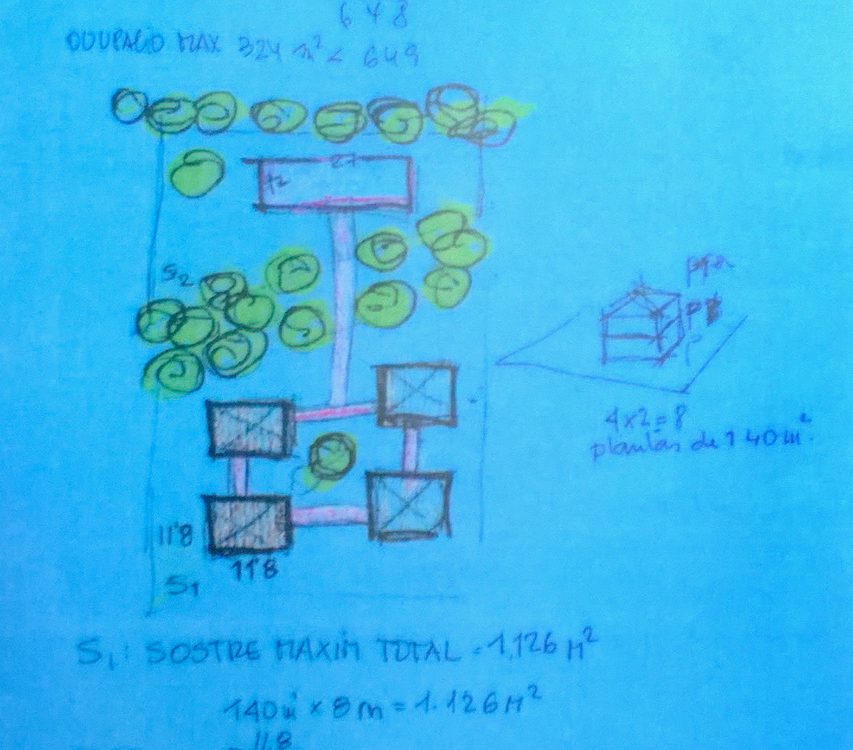 648
OCUPACIÓ MAX 324 m² < 649
27
12
S2
4x2=8
plantas de 140 m².
11'8
11'8
S1
S1: SOSTRE MAXIM TOTAL = 1,126 M²
140 m² x 8 m = 1.126 M²
11.8